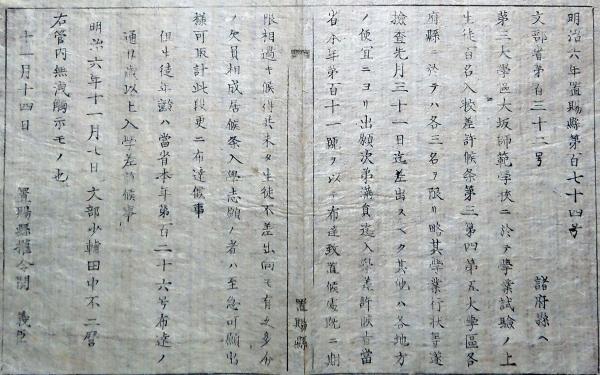 明治六年置賜縣第百七十四号
文部省第百三十一号　諸府縣ヘ
第三大學區大坂師範学校ニ於テ學業試驗ノ上
生徒百名入校差許候条第三第四第五大學區各
府縣ニ於テハ各三名ヲ限リ略其学業行状等遂
撿査先月三十一日迄差出スヘク其他ハ各地方
ノ便宜ニヨリ出願次第満員迄入學差許候旨當
省本年第百十一號ヲ以テ布達致置候處既ニ期
置賜縣
限相過キ候得共未タ生徒不差出向モ有之多分
ノ欠員相成居候条入學志願ノ者ハ至急可願出
様可取計此段更ニ布達候事
但生徒年齢ハ當省本年第百二十六号布達ノ
通以上入學差許候事
明治六年十一月七日文部少輔田中不二麿
右管内無洩觸示モノ也
十一月十四日　置賜縣権令関義臣